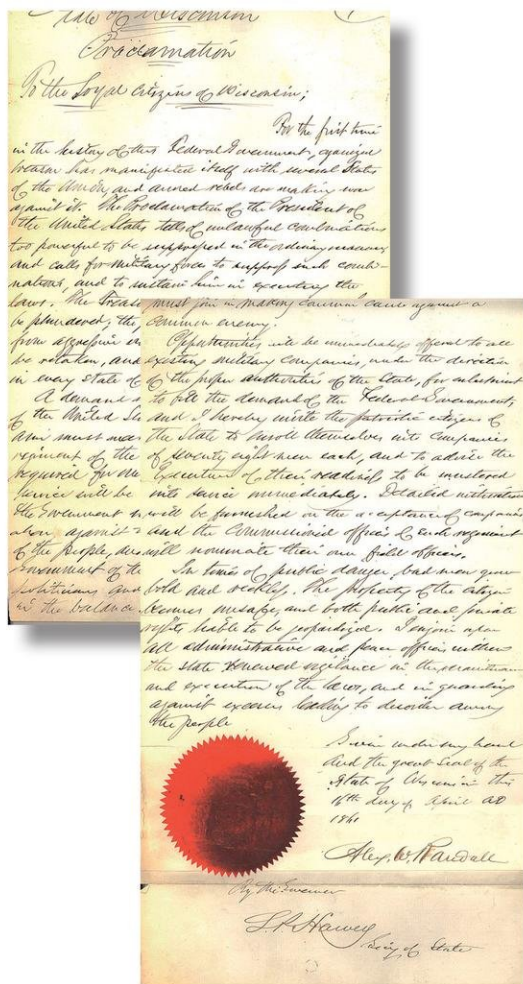 State of Wisconsin
Proclamation
To the Loyal Citizens of Wisconsin;
For the first time
in the history of this Federal Government, organized
treason has manifested itself with several States
of the Union, and armed rebels are making war
against it. The Proclamation of the President of
the United States tells of unlawful combinations
too powerful to be suppressed in the ordinary manner
and calls for military forces to suppress such combi-
nations, and to sustain him in executing the
laws. The Treas
be plundered; the
from aggression
be retaken, and
in every state of
A demand
of the United Sta
and must
regiment of the
required for
service will be
the Government
against
of the people,
Government of the
politicians and
in the balance
must join in making common cause against a
common enemy.
Opportunities will be immediately offered to all
existing military companies, under the direction
of the proper authorities of the State, for enlistment
to fill the demand of the Federal Government,
and I hereby invite the patriotic citizens of
the State to enroll themselves into companies
of seventy eight men each, and to advise the
Executive of their readiness to be mustered
into service immediately. Detailed instructions
will be furnished on the acceptance of companies
and the commissioned officers of each regiment
will nominate their own field officers.
In times of public danger bad men grow
bold and reckless. The property of the citizen
becomes unsafe, and both public and private
rights liable to be jeopardized. I enjoin upon
all administrative and peace officers within
the state renewed vigilance in the maintenance
and execution of the laws, and in guarding
against excesses leading to disorder among
the people
Given under my hand
and the great Seal of the
State of Wisconsin this
16th day of April AD
1861
Alex. W. Randall
By the Governor
L.P. Harvey
Secy of State